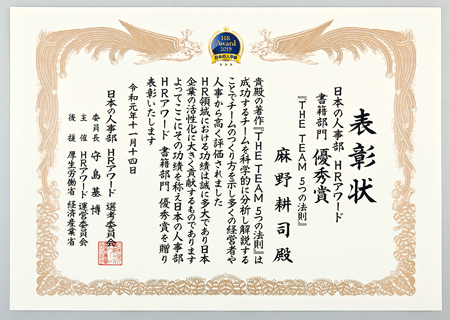 HR
Award
2019
日本の人事部
表彰状
日本の人事部 HRアワード
書籍部門 優秀賞
『THE TEAM 5つの法則』
麻野耕司殿
貴殿の著作『THE TEAM 5つの法則』は
成功するチームを科学的に分析し解説する
ことでチームのつくり方を示し多くの経営者や
人事から高く評価されました
HR領域における功績は誠に多大であり日本
企業の活性化に大きく貢献するものであります
よってここにその功績を称え日本の人事部
HRアワード 書籍部門 優秀賞を贈り
表彰いたします
令和元年十一月十四日
日本の人事部 HRアワード 選考委員会
委員長 守島基博
主催 HRアワード 運営委員会
後援 厚生労働省 経済産業省